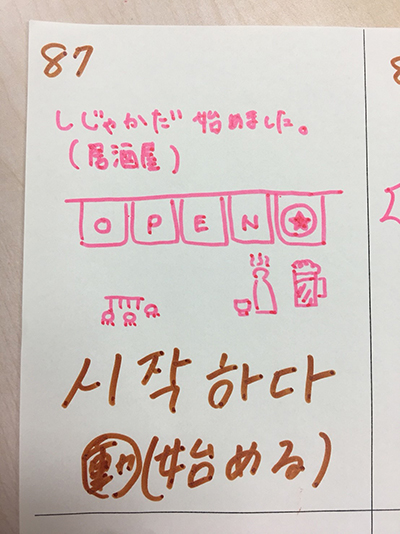 87
しじゃかだ 始めました。
(居酒屋)
OPEN
시작하다
動(始める)